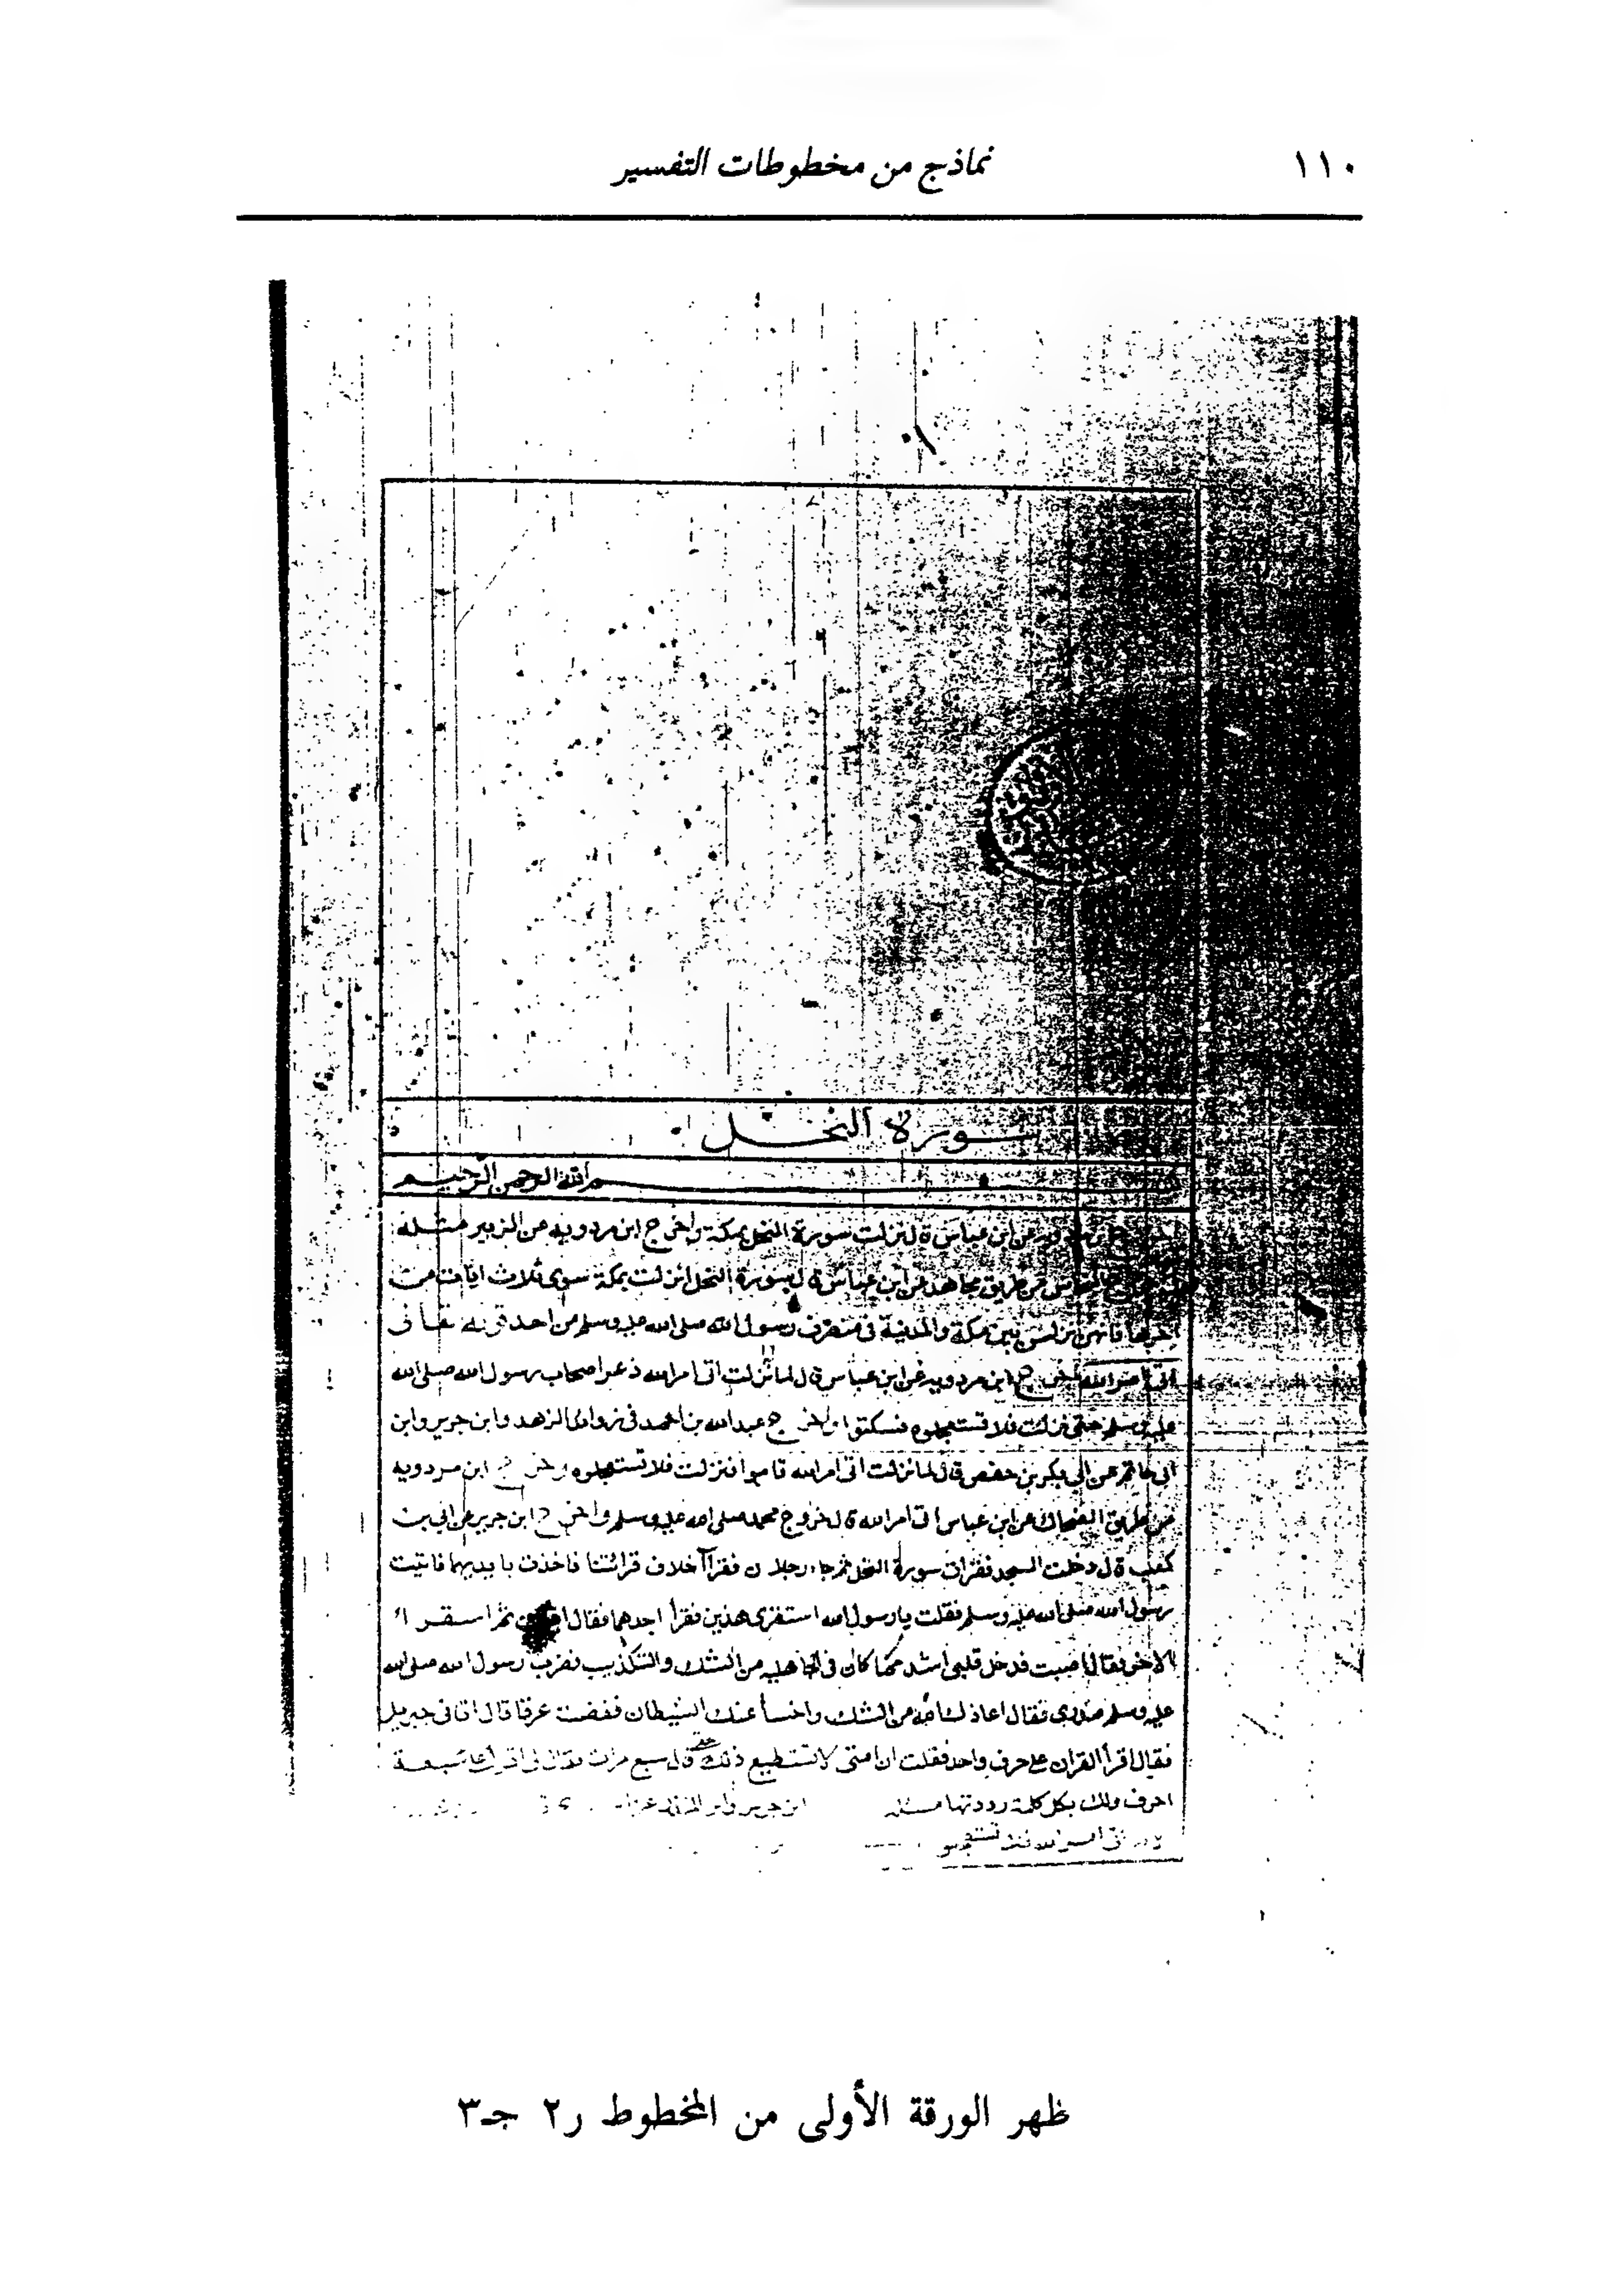 ١١٠
نماذج من مخطوطات التفسير
سورة النحل
الله الرحمن الرحيم
عن ابن عباس قال نزلت سورة النحل بمكة واخرج ابن مردويه عن الزبير مثله
من طريق مجاهد عن ابن عباس قال سورة النحل نزلت بمكة سوى ثلاث ايات من
اخرها فانهن نزلن بين مكة والمدينة في منصرف رسول الله صلى الله عليه وسلم من احد
اتى امر الله ابن مردويه عن ابن عباس قال لما نزلت اتى امر الله ذعر اصحاب رسول الله صلى الله
عليه وسلم حتى نزلت فلا تستعجلوه فسكنوا اخرج عبد الله بن احمد في زوائد الزهد وابن جرير وابن
ابي حاتم عن ابي بكر بن حفص قال لما نزلت اتى امر الله قاموا فنزلت فلا تستعجلوه واخرج ابن مردويه
من طريق الضحاك عن ابن عباس اتى امر الله قال خروج محمد صلى الله عليه وسلم واخرج ابن جرير عن ابي بن
كعب قال دخلت المسجد فقرات سورة النحل ثم جاء رجلان فقرآ خلاف قرائتنا فاخذت بايديهما فاتيت
رسول الله صلى الله عليه وسلم فقلت يا رسول الله استقرى هذين فقرأ احدهما فقال ثم استقرا
الاخر فقال اصبت فدخل قلبي اشد مما كان في الجاهلية من الشك والتكذيب فضرب رسول الله صلى الله
عليه وسلم صدري فقال اعاذك الله من الشك واخسأ عنك الشيطان ففضت عرقا قال اتاني جبريل
فقال اقرأ القران على حرف واحد فقلت ان امتي لا تستطيع ذلك حتى قال سبع مرات فقال لي اقرأ على سبعة
احرف ولك بكل كلمة رددتها مسئلة ابن جرير وابن المنذر
ظهر الورقة الأولى من المخطوط ر٢ جـ٣